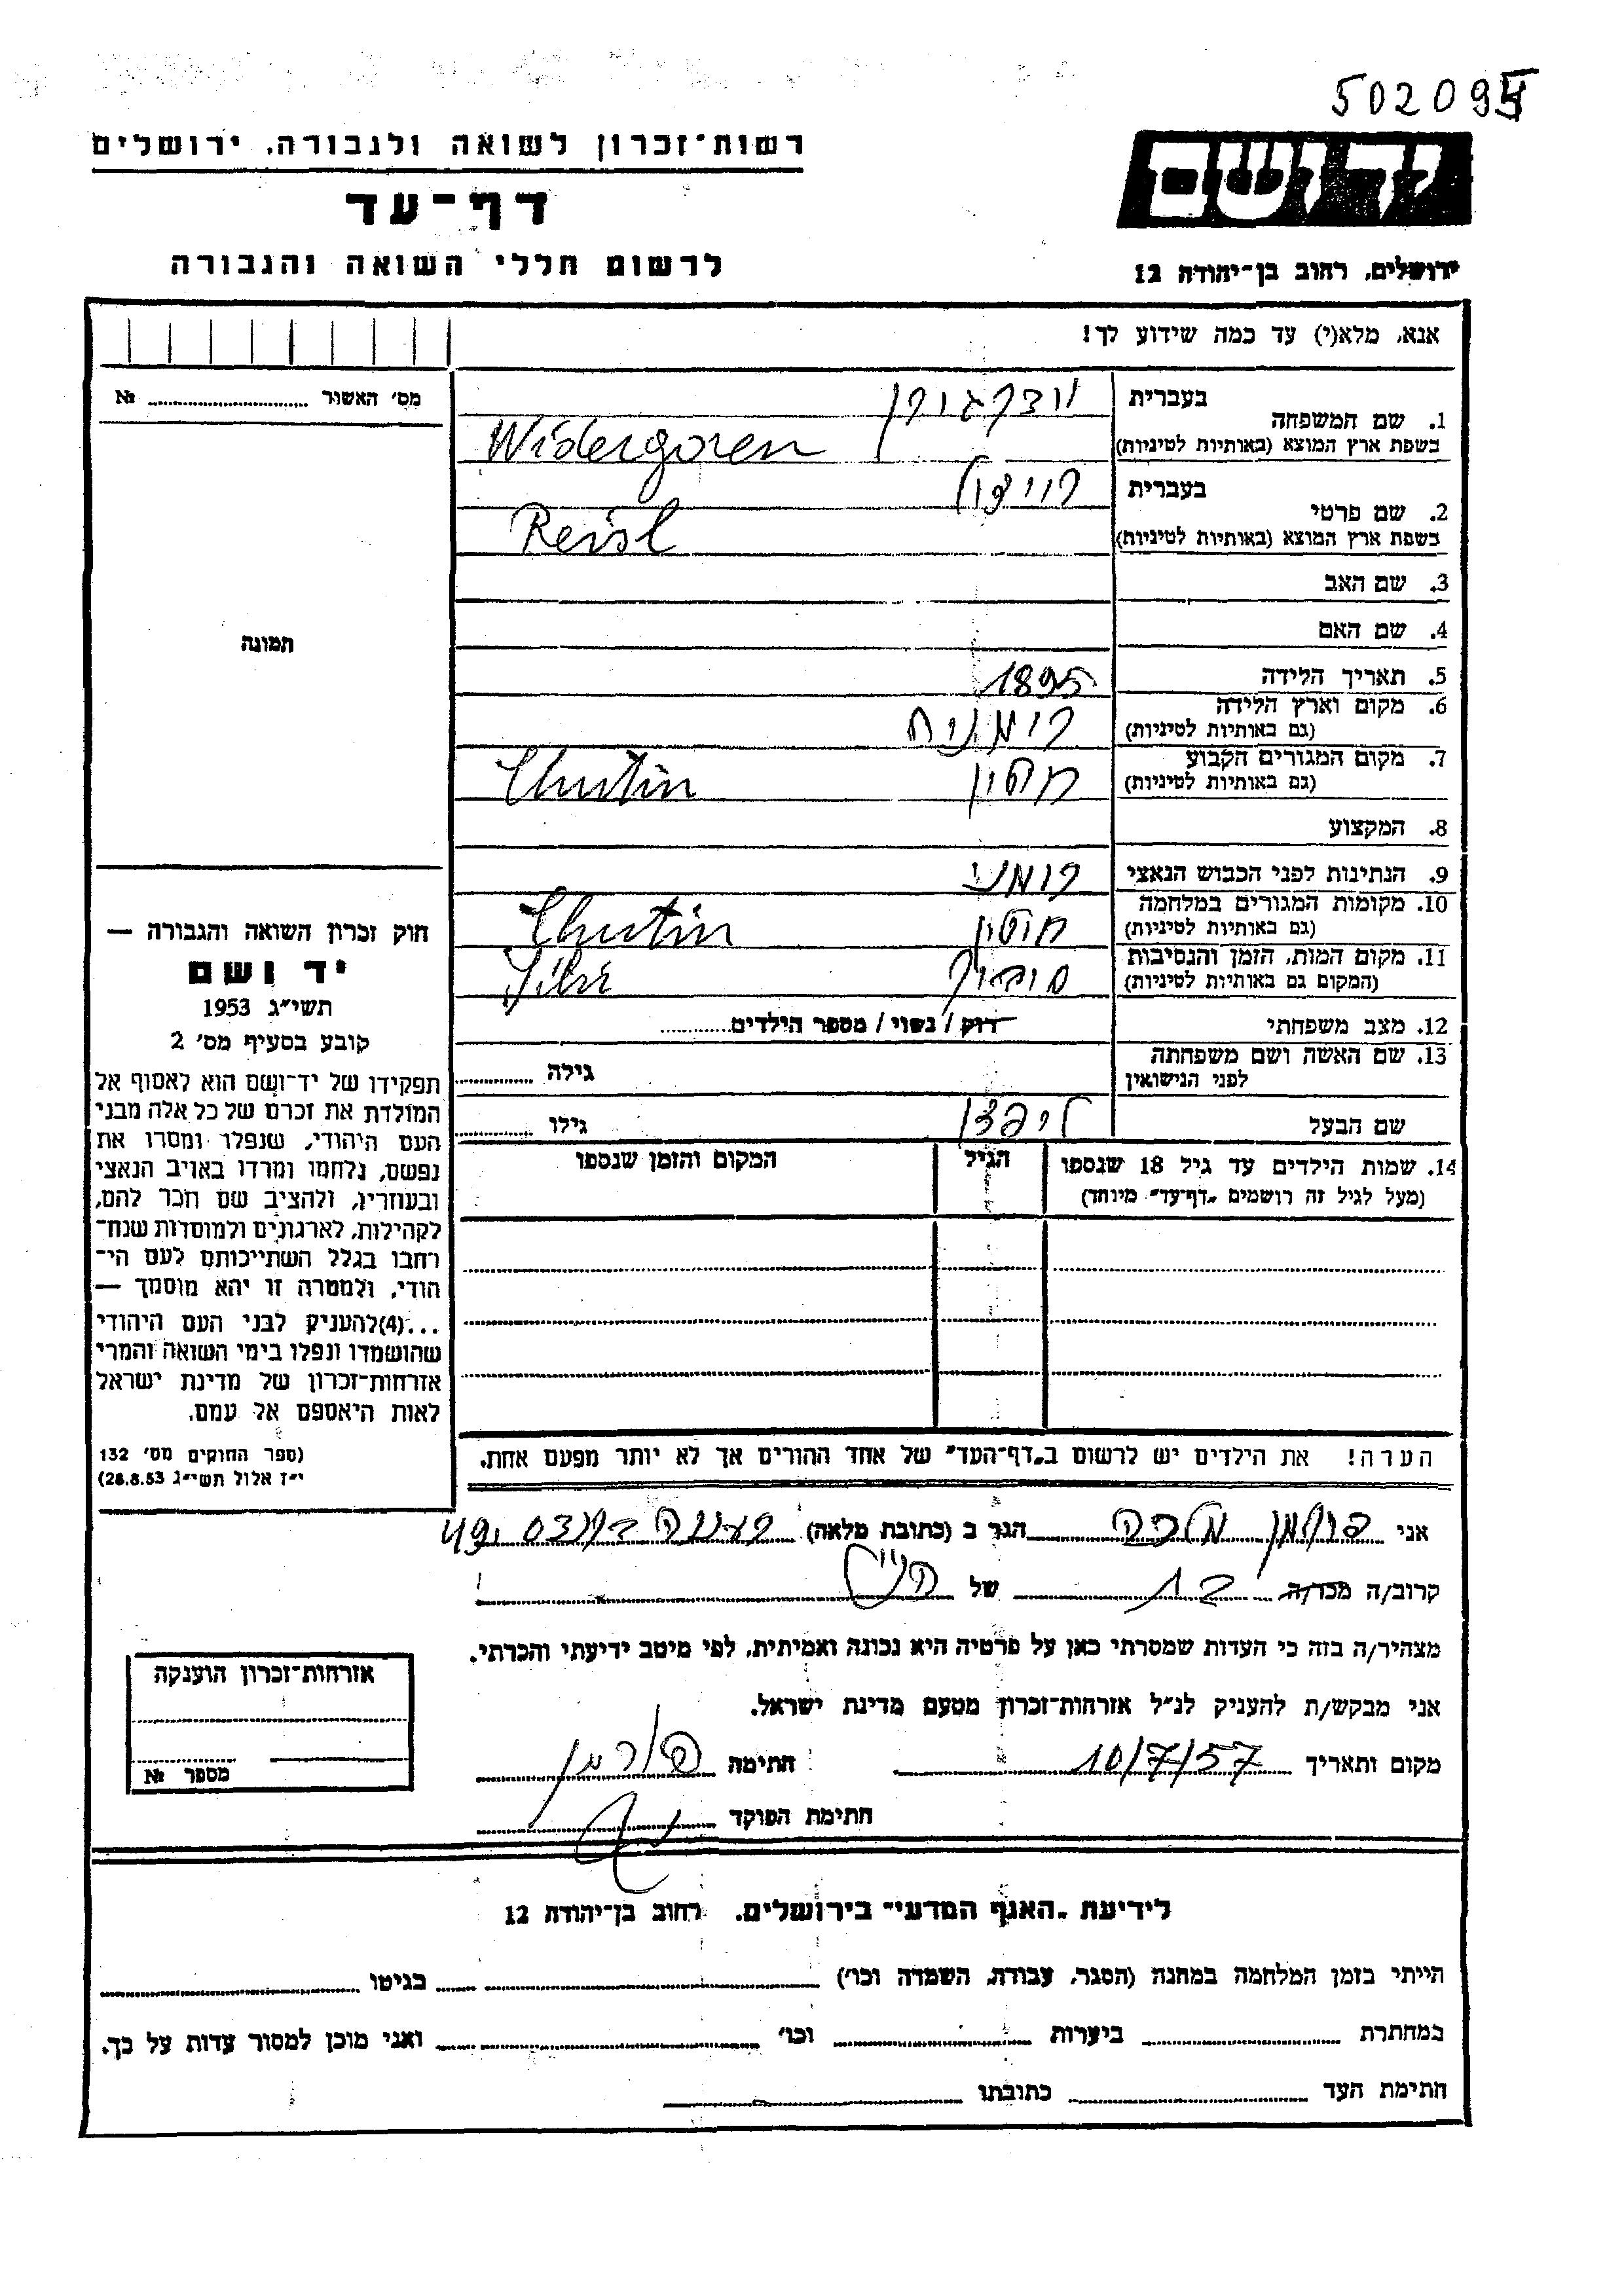 502094
רשות־זכרון לשואה ולגבורה, ירושלים
יד ושם
דף־עד
לרשום חללי השואה והגבורה
ירושלים, רחוב בן־יהודה 12
אנא, מלא(י) עד כמה שידוע לך!
מס׳ האשור № 
בעברית
1. שם המשפחה
בשפת ארץ המוצא (באותיות לטיניות) Widergoren
בעברית רייזל
2. שם פרטי
בשפת ארץ המוצא (באותיות לטיניות) Reisl
3. שם האב
4. שם האם
תמונה
5. תאריך הלידה 1895
6. מקום וארץ הלידה רומניה
(גם באותיות לטיניות)
7. מקום המגורים הקבוע חוטין Chutin
(גם באותיות לטיניות)
8. המקצוע
9. הנתינות לפני הכבוש הנאצי רומני
10. מקומות המגורים במלחמה חוטין Chutin
(גם באותיות לטיניות)
11. מקום המות, הזמן והנסיבות
(המקום גם באותיות לטיניות)
12. מצב משפחתי רוק / נשוי / מספר הילדים
13. שם האשה ושם משפחתה
לפני הנישואין גילה
שם הבעל גילו
14. שמות הילדים עד גיל 18 שנספו הגיל המקום והזמן שנספו
(מעל לגיל זה רושמים „דף־עד״ מיוחד)
הערה! את הילדים יש לרשום ב„דף־העד״ של אחד ההורים אך לא יותר מפעם אחת.
חוק זכרון השואה והגבורה —
יד ושם
תשי״ג 1953
קובע בסעיף מס׳ 2
תפקידו של יד־ושם הוא לאסוף אל
המולדת את זכרם של כל אלה מבני
העם היהודי, שנפלו ומסרו את
נפשם, נלחמו ומרדו באויב הנאצי
ובעוזריו, ולהציב שם וזכר להם,
לקהילות, לארגונים ולמוסדות שנח־
רחבו בגלל השתייכותם לעם הי־
הודי, ולמטרה זו יהא מוסמך —
...(4)להעניק לבני העם היהודי
שהושמדו ונפלו בימי השואה והמרי
אזרחות־זכרון של מדינת ישראל
לאות היאספם אל עמם.
(ספר החוקים מס׳ 132
י״ז אלול תשי״ג 28.8.53)
אני פורמן מלכה הגר ב (כתובת מלאה)
קרוב/ה מכר/ה בת של הנ״ל
מצהיר/ה בזה כי העדות שמסרתי כאן על פרטיה היא נכונה ואמיתית, לפי מיטב ידיעתי והכרתי.
אני מבקש/ת להעניק לנ״ל אזרחות־זכרון מטעם מדינת ישראל.
מקום ותאריך 10/7/57 חתימה פורמן
חתימת הפוקד
אזרחות־זכרון הוענקה
מספר №
לידיעת „האגף המדעי״ בירושלים, רחוב בן־יהודה 12
הייתי בזמן המלחמה במחנה (הסגר, עבודה, השמדה וכו׳) בגיטו
במחתרת ביערות וכו׳ ואני מוכן למסור עדות על כך.
חתימת העד כתובתו